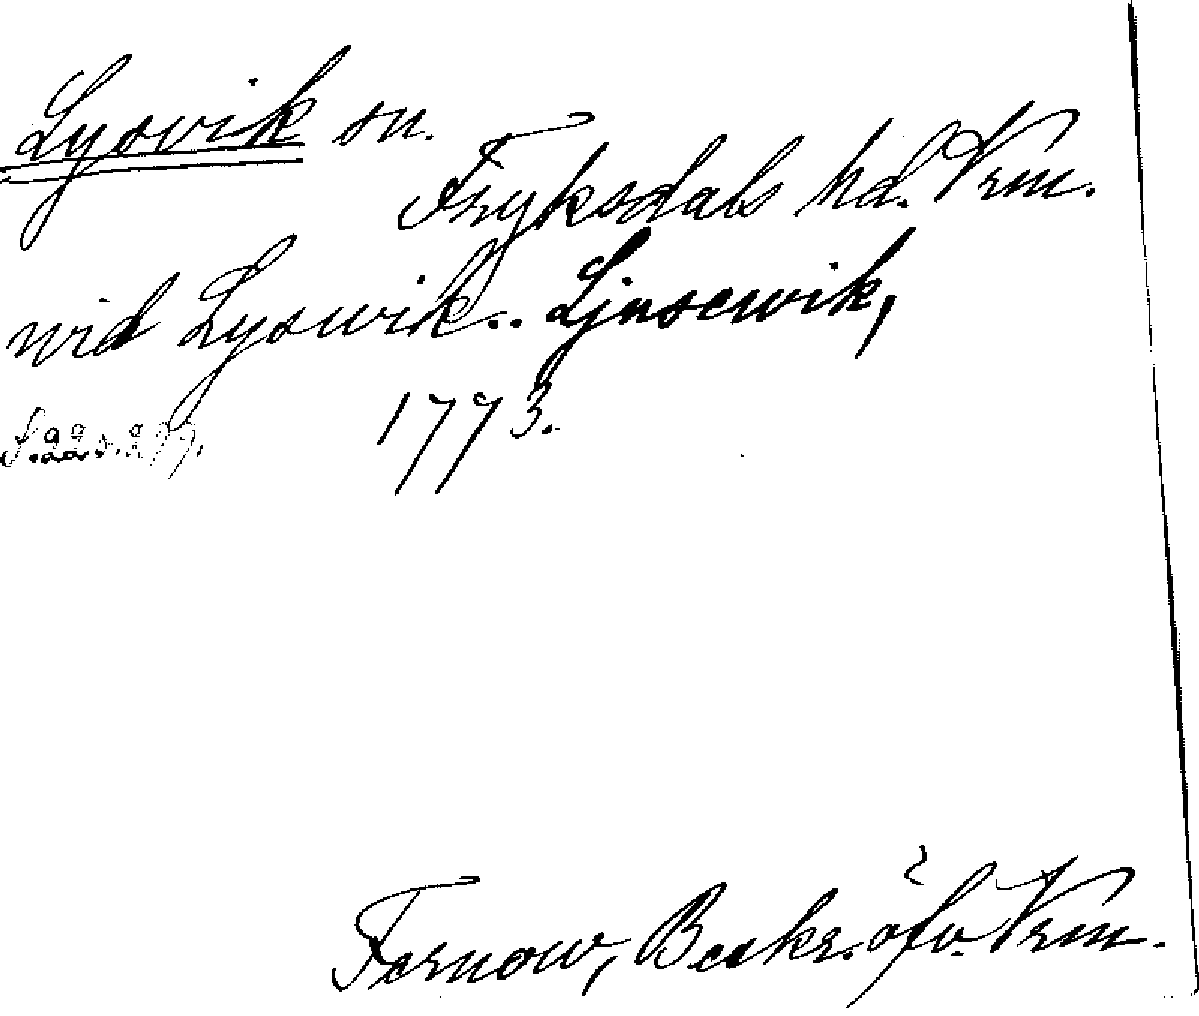 Lysvik sn.
Fryksdals hd. Vrm.
wid Lyswik.. Ljusewik,
1773.
Fernow, Beskr. öfv. Vrm.